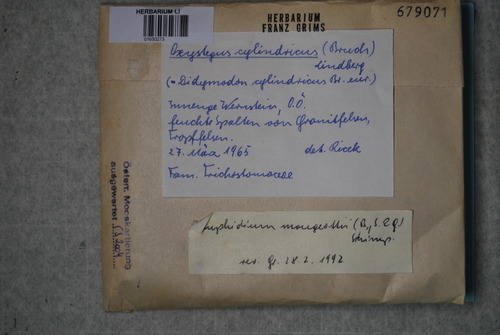 HERBARIUM LI
HERBARIUM
FRANZ GRIMS
679071
Oxystegus cylindricus (Bruch)
Lindberg
(= Didymodon cylindricus Br. eur.)
Innenge Wernstein, O.Ö.
feuchte Spalten von Granitfelsen,
Tropffelsen.
27. März 1965 det. Ricek
Fam. Trichostomaceae
Österr. Mooskartierung
ausgewertet
Amphidium mougeottii (B, S. & G)
Schimp.
rev. Gr. 28.2. 1992